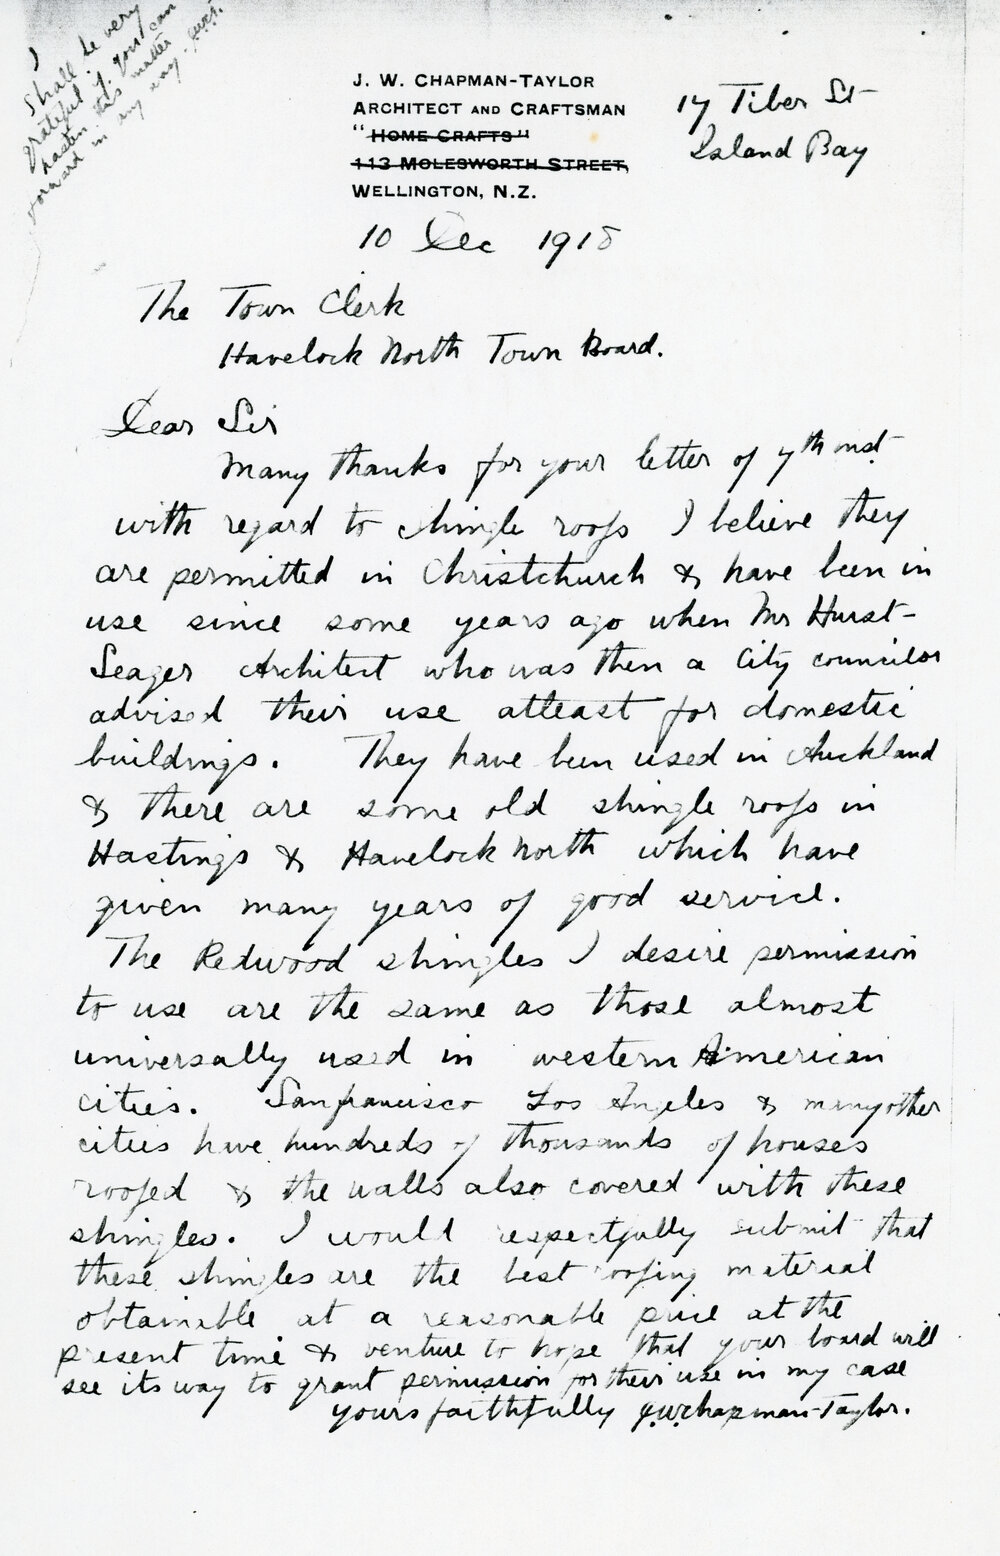 I
shall be very
grateful if you can
hasten this matter
forward in any way.
J. W. CHAPMAN-TAYLOR
ARCHITECT AND CRAFTSMAN
"HOME CRAFTS"
113 MOLESWORTH STREET,
WELLINGTON, N.Z.
17 Tiber St
Island Bay
10 Dec 1918
The Town Clerk
Havelock North Town Board.
Dear Sir
Many thanks for your letter of 7th inst
with regard to shingle roofs I believe they
are permitted in Christchurch & have been in
use since some years ago when Mr Hurst-
Seager Architect who was then a City councilor
advised their use atleast for domestic
buildings. They have been used in Auckland
& there are some old shingle roofs in
Hastings & Havelock North which have
given many years of good service.
The Redwood shingles I desire permission
to use are the same as those almost
universally used in western American
cities. Sanfrancisco Los Angeles & many other
cities have hundreds of thousands of houses
roofed & the walls also covered with these
shingles. I would respectfully submit that
these shingles are the best roofing material
obtainable at a reasonable price at the
present time & venture to hope that your board will
see its way to grant permission for their use in my case
yours faithfully J.W. Chapman-Taylor.